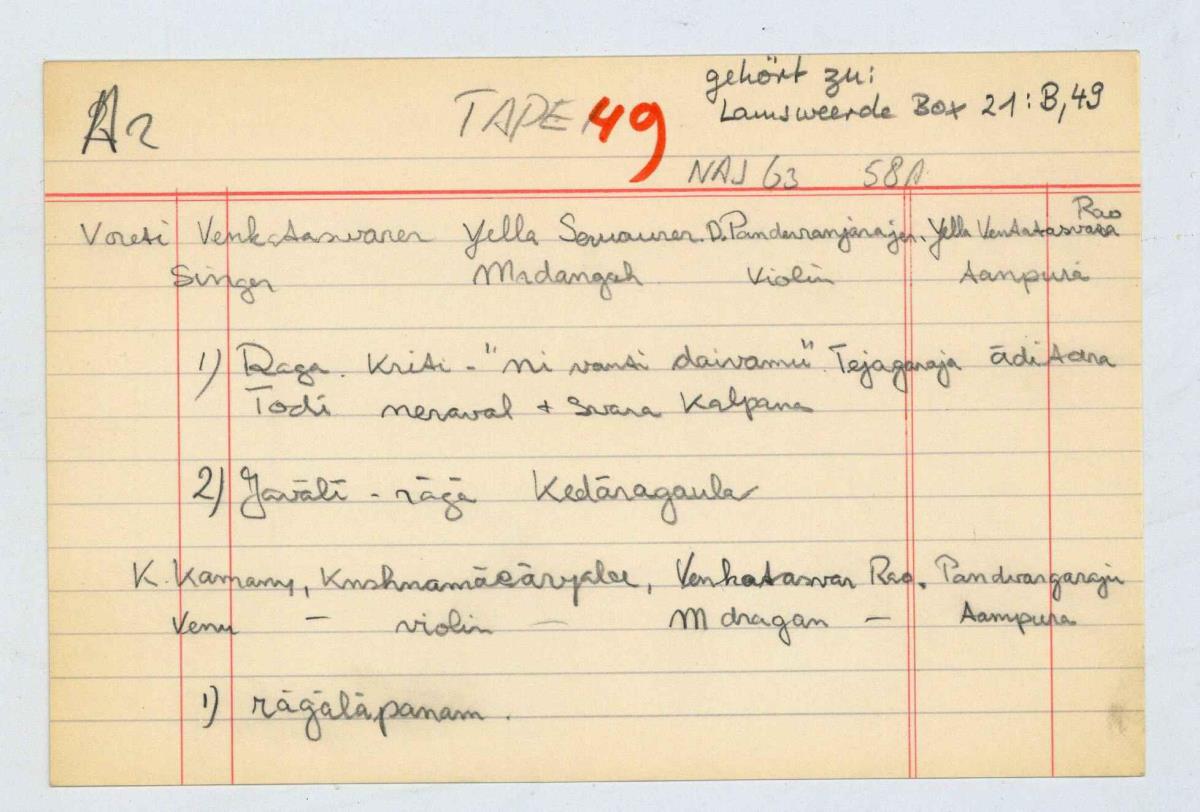 gehört zu:
A2 TAPE 49 Lamsweerde Box 21:B,49
NAJ 63 58A
Rao
Voreti Venkatasvarer Yella D.Panduranjarajer. Yella Ventatasvara
Singer Mrdangah Violin Aampura
1) Raga. Kriti - "ni vansi daivamu" Tejagaraja ādi
Todi neraval + svara Kalpana
2) Javālī - rāgā Kedāragaula
K. Kamamy, Krishnamācāryalee, Venkatasvar Rao, Pandvangaraju
Venu – violin – Mdragan – Aampura
1) rāgālāpanam.